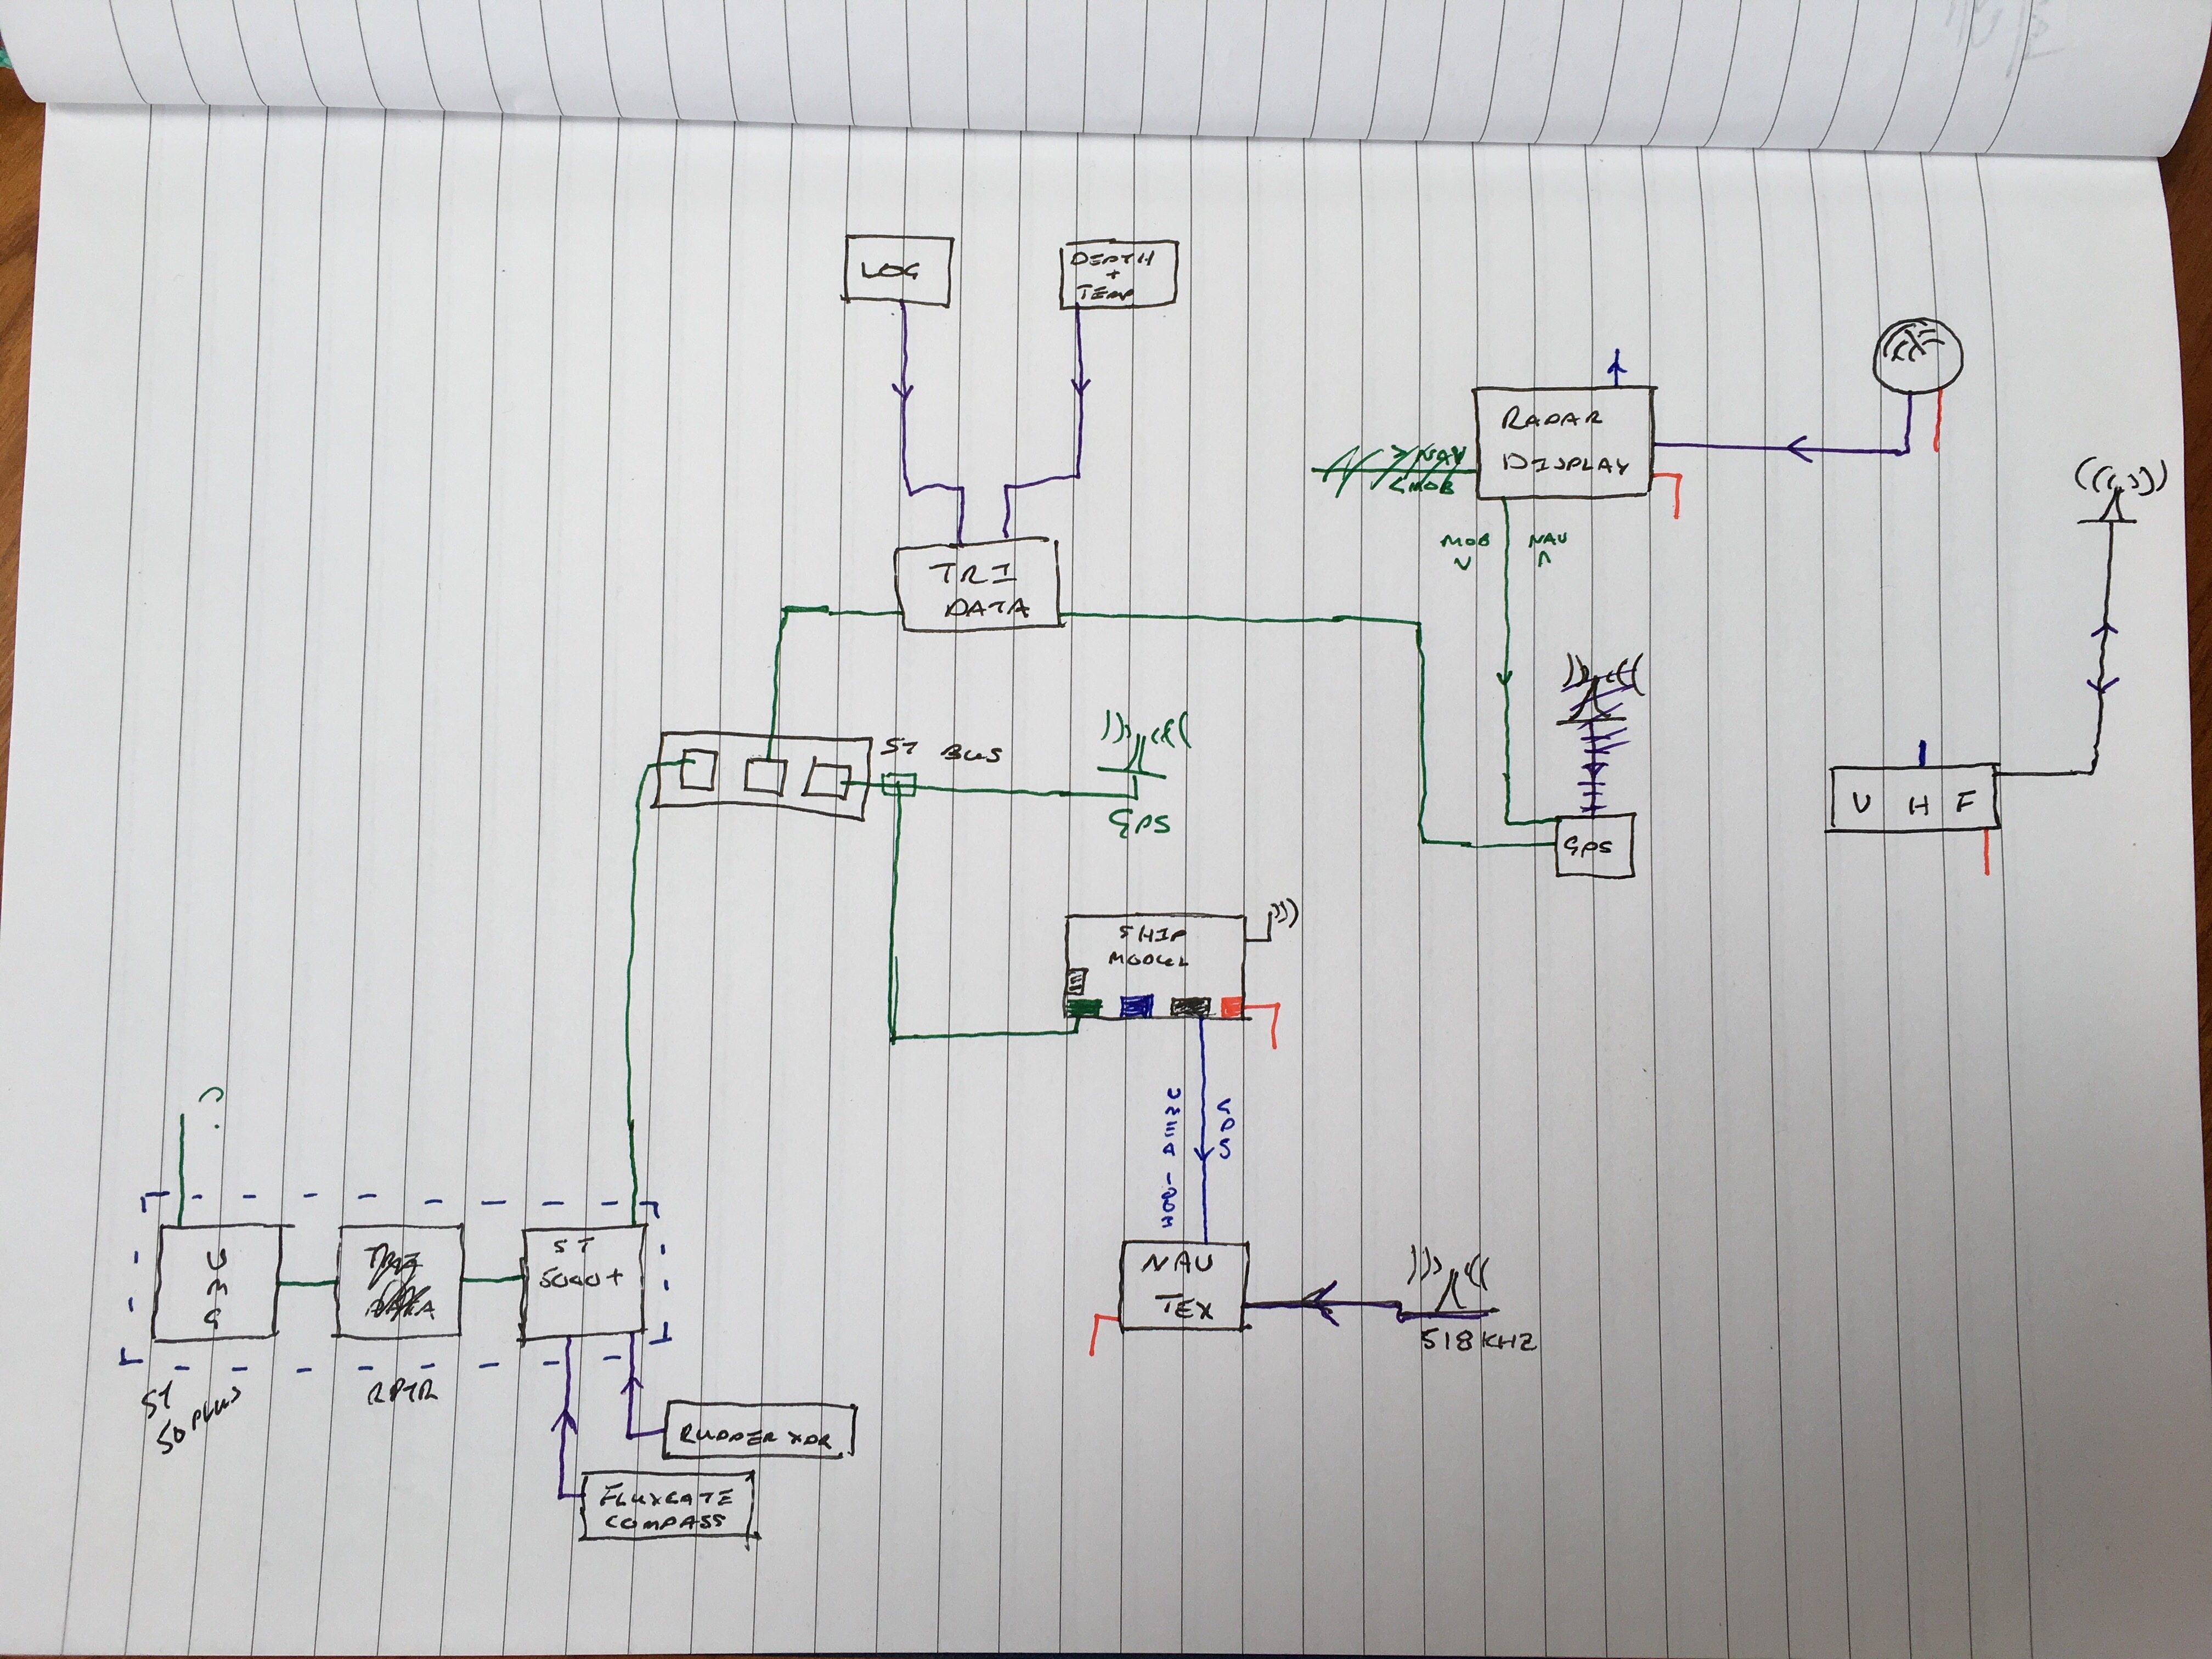 LOG
DEPTH
+
TEMP
RADAR
DISPLAY
> NAV
< MOB
MOB
NAV
TRI
DATA
ST BUS
GPS
GPS
V H F
SHIP
MODUL
GPS
NAV
TEX
518 KHZ
ST
5000+
ST
50 PLUS
RPTR
RUDDER XDR
FLUXGATE
COMPASS
?